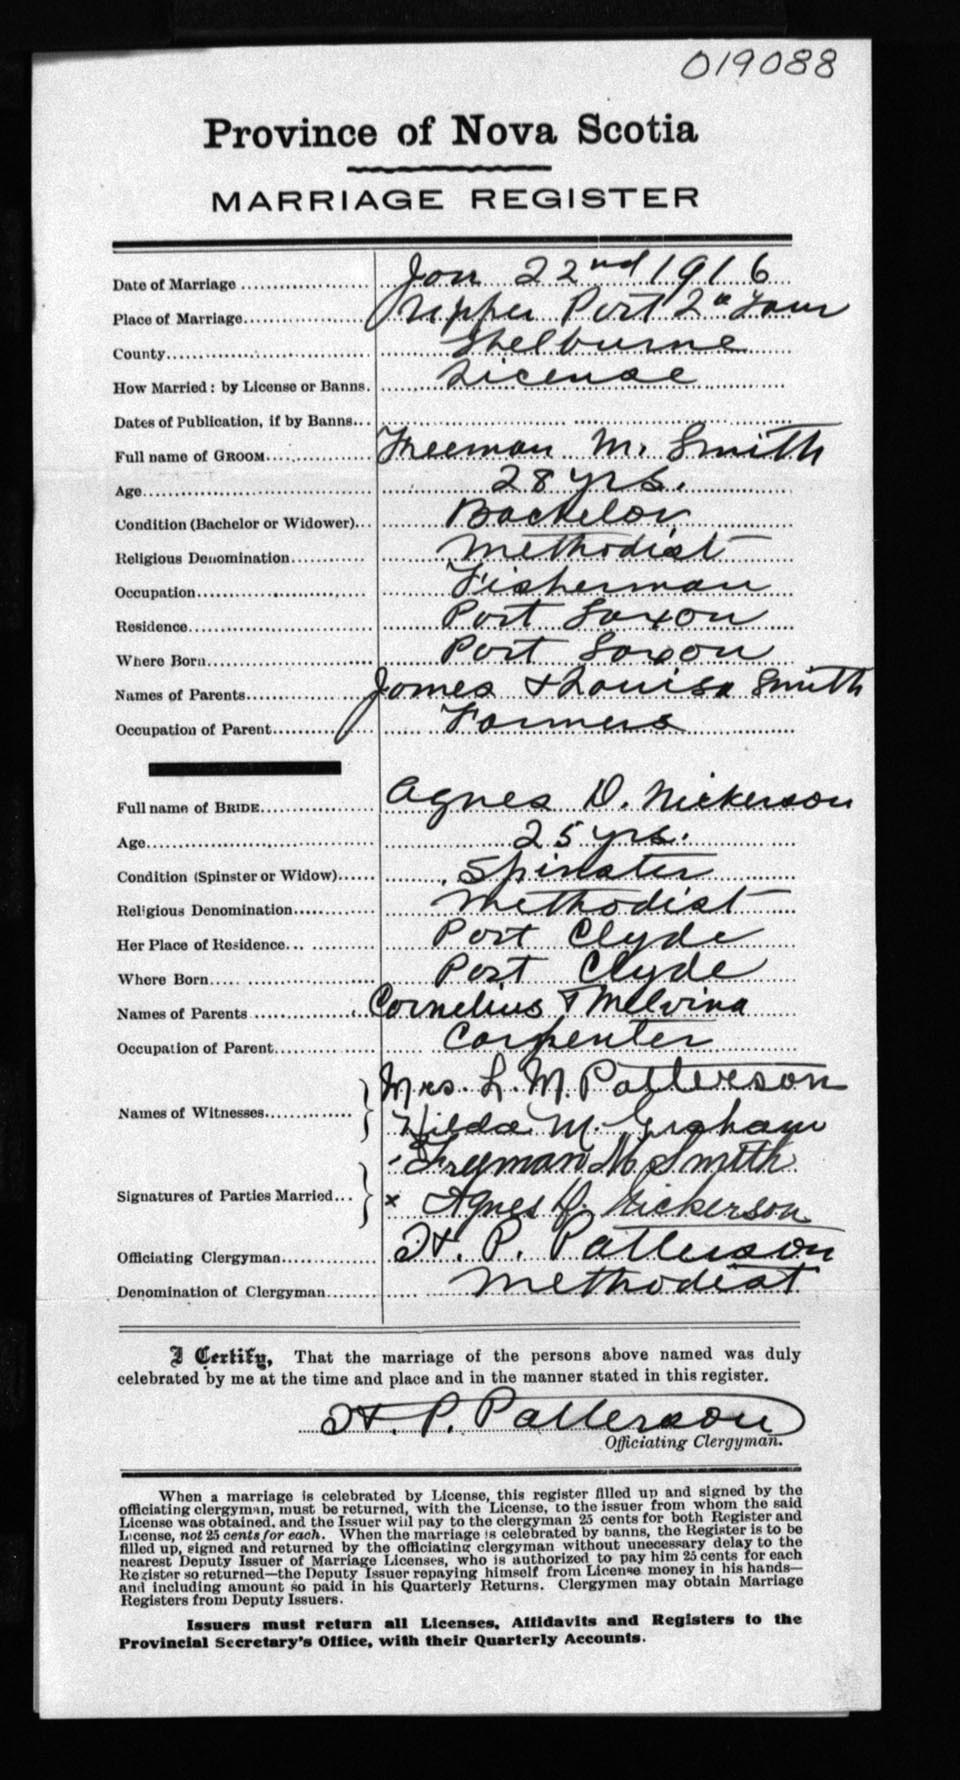 019088
Province of Nova Scotia
MARRIAGE REGISTER
Date of Marriage Jan 22nd 1916
Place of Marriage Upper Port La Tour
County Shelburne
How Married: by License or Banns. License
Dates of Publication, if by Banns
Full name of GROOM Freeman M. Smith
Age 28 yrs.
Condition (Bachelor or Widower) Bachelor
Religious Denomination Methodist
Occupation Fisherman
Residence Port Saxon
Where Born Port Saxon
Names of Parents James & Louisa Smith
Occupation of Parent Farmers
Full name of BRIDE Agnes D. Nickerson
Age 25 yrs.
Condition (Spinster or Widow) Spinster
Religious Denomination Methodist
Her Place of Residence Port Clyde
Where Born Port Clyde
Names of Parents Cornelius & Melvina
Occupation of Parent Carpenter
Names of Witnesses Mrs. L. M. Patterson
Hilda M. Graham
Signatures of Parties Married Freeman M Smith
x Agnes D. Nickerson
Officiating Clergyman H. P. Patterson
Denomination of Clergyman Methodist
I Certify, That the marriage of the persons above named was duly
celebrated by me at the time and place and in the manner stated in this register.
H. P. Patterson
Officiating Clergyman.
When a marriage is celebrated by License, this register filled up and signed by the
officiating clergyman, must be returned, with the License, to the issuer from whom the said
License was obtained, and the Issuer will pay to the clergyman 25 cents for both Register and
License, not 25 cents for each. When the marriage is celebrated by banns, the Register is to be
filled up, signed and returned by the officiating clergyman without unnecessary delay to the
nearest Deputy Issuer of Marriage Licenses, who is authorized to pay him 25 cents for each
Register so returned—the Deputy Issuer repaying himself from License money in his hands—
and including amount so paid in his Quarterly Returns. Clergymen may obtain Marriage
Registers from Deputy Issuers.
Issuers must return all Licenses, Affidavits and Registers to the
Provincial Secretary's Office, with their Quarterly Accounts.